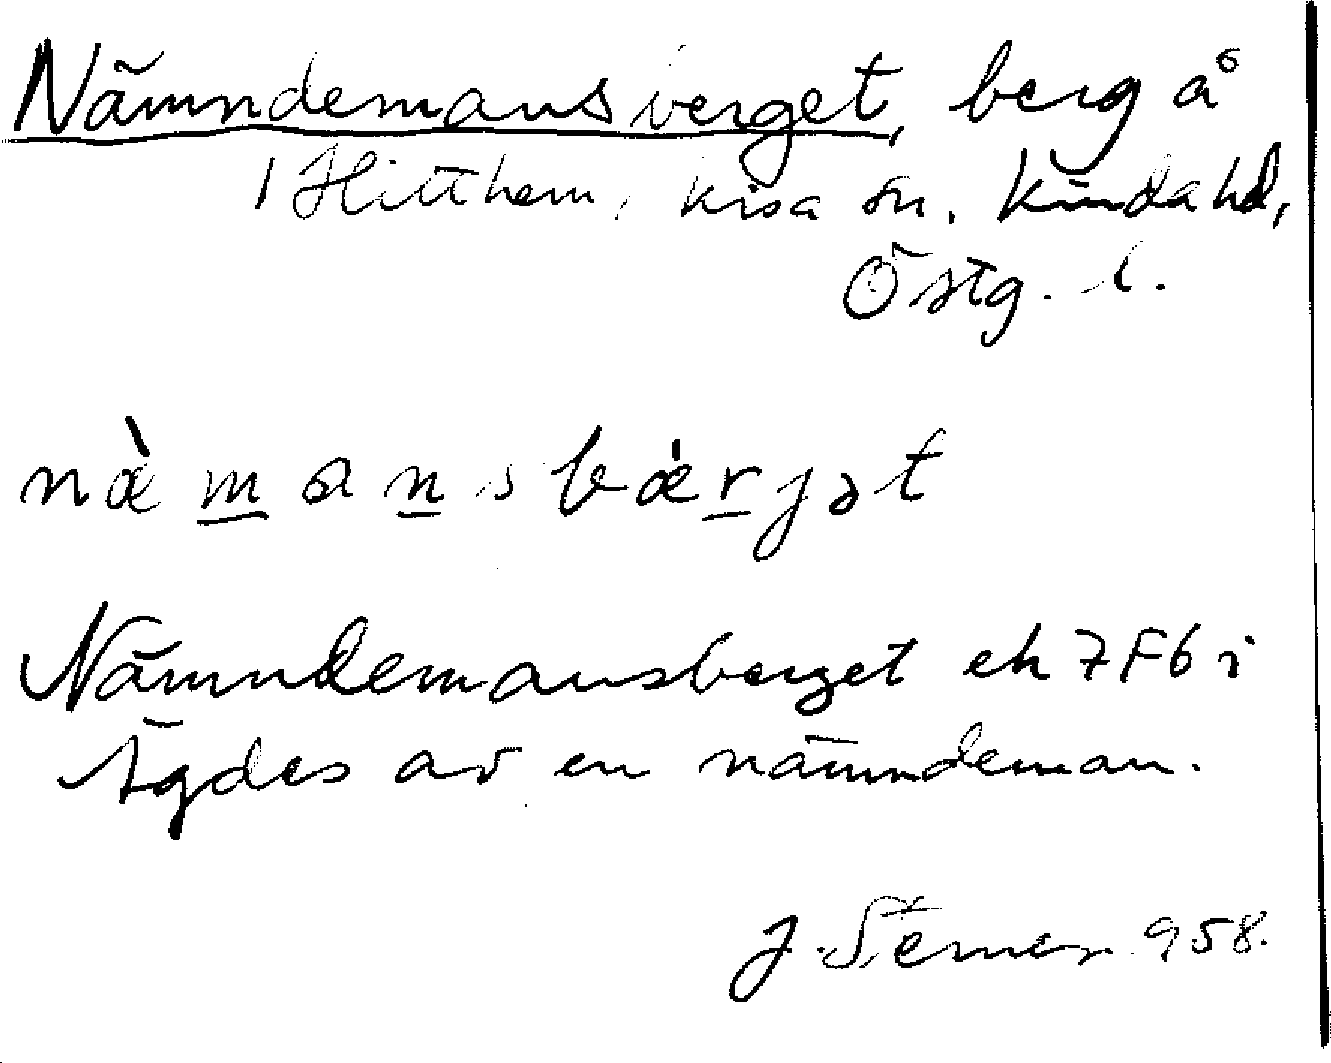 Nämndemansberget, berg å
1 Hitthem, Kisa sn. Kinda hd,
Östg. l.
næ̀mansbærjət
Nämndemansberget ek 7F6 i
Ägdes av en nämndeman.
J. Sterner 958.